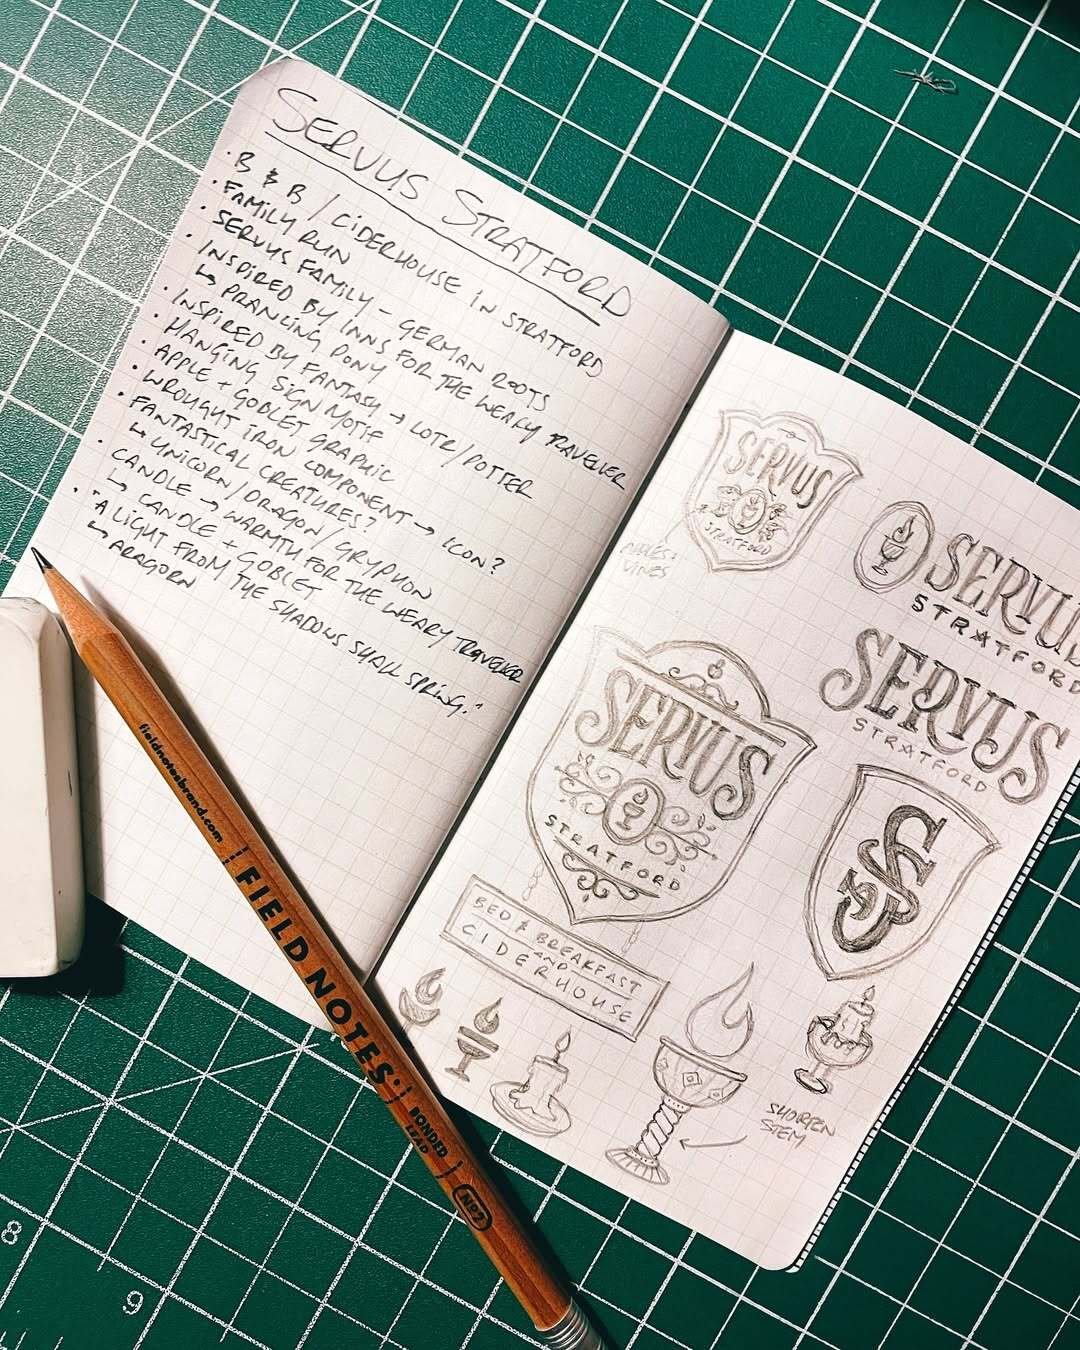 SERVUS STRATFORD
· B & B / CIDERHOUSE IN STRATFORD
· FAMILY RUN
· SERVUS FAMILY - GERMAN ROOTS
· INSPIRED BY INNS FOR THE WEARY TRAVELLER
↳ PRANCING PONY
· INSPIRED BY FANTASY → LOTR / POTTER
· HANGING SIGN MOTIF
· APPLE + GOBLET GRAPHIC
· WROUGHT IRON COMPONENT → ICON?
· FANTASTICAL CREATURES?
↳ UNICORN / DRAGON / GRYPHON
· CANDLE → WARMTH FOR THE WEARY TRAVELLER
↳ CANDLE + GOBLET
· "A LIGHT FROM THE SHADOWS SHALL SPRING."
↳ ARAGORN
SERVUS
STRATFORD
VINES
SERVUS
STRATFORD
SERVUS
STRATFORD
SERVUS
STRATFORD
BED & BREAKFAST
AND
CIDERHOUSE
SS
SHORTEN
STEM
fieldnotesbrand.com
FIELD NOTES
BONDED
LEAD
No2
8
9